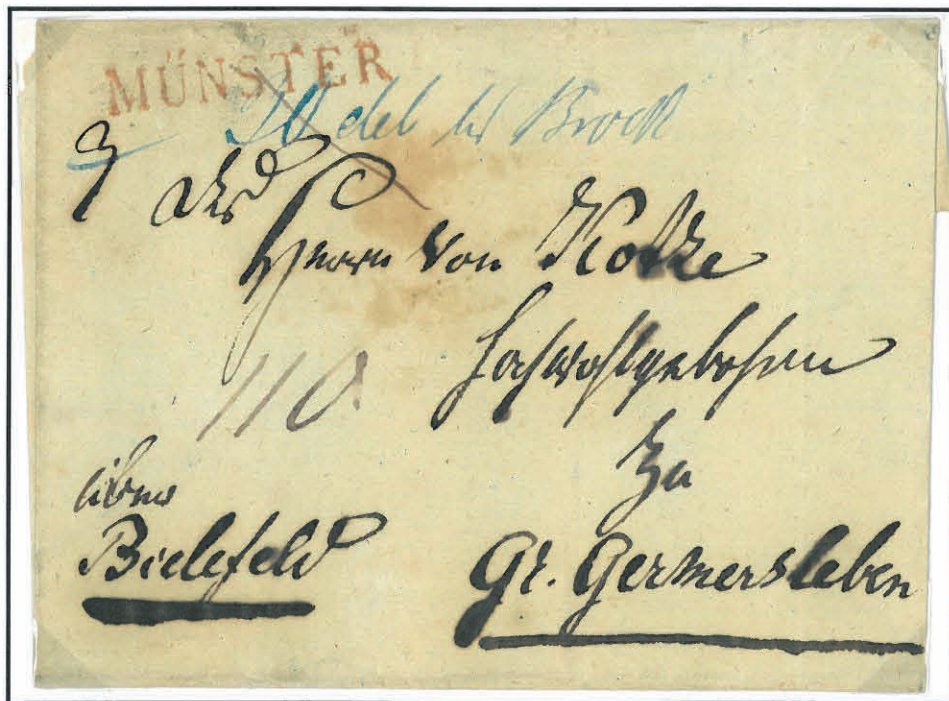 MÜNSTER
del Brock
Des
Herrn Von Kotze
Hochwohlgebohren
110.
Zu
über
Bielefeld
Gr. Germersleben